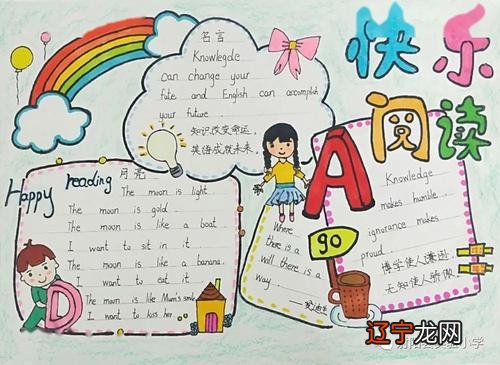 快乐
阅读
名言
Knowlegde
can change your
fate and English can accomplish
your future
知识改变命运,
英语成就未来.
Happy reading
月亮
The moon is light
The moon is gold
The moon is like a boat
I want to sit in it
The moon is like a banana
I want to eat it
The moon is like Mum's smile
I want to kiss her
D
Where
there is a
will there is a
way
A
go
Knowledge
makes humble
ignorance makes
proud
博学使人谦逊
无知使人骄傲
辽宁龙网
小学